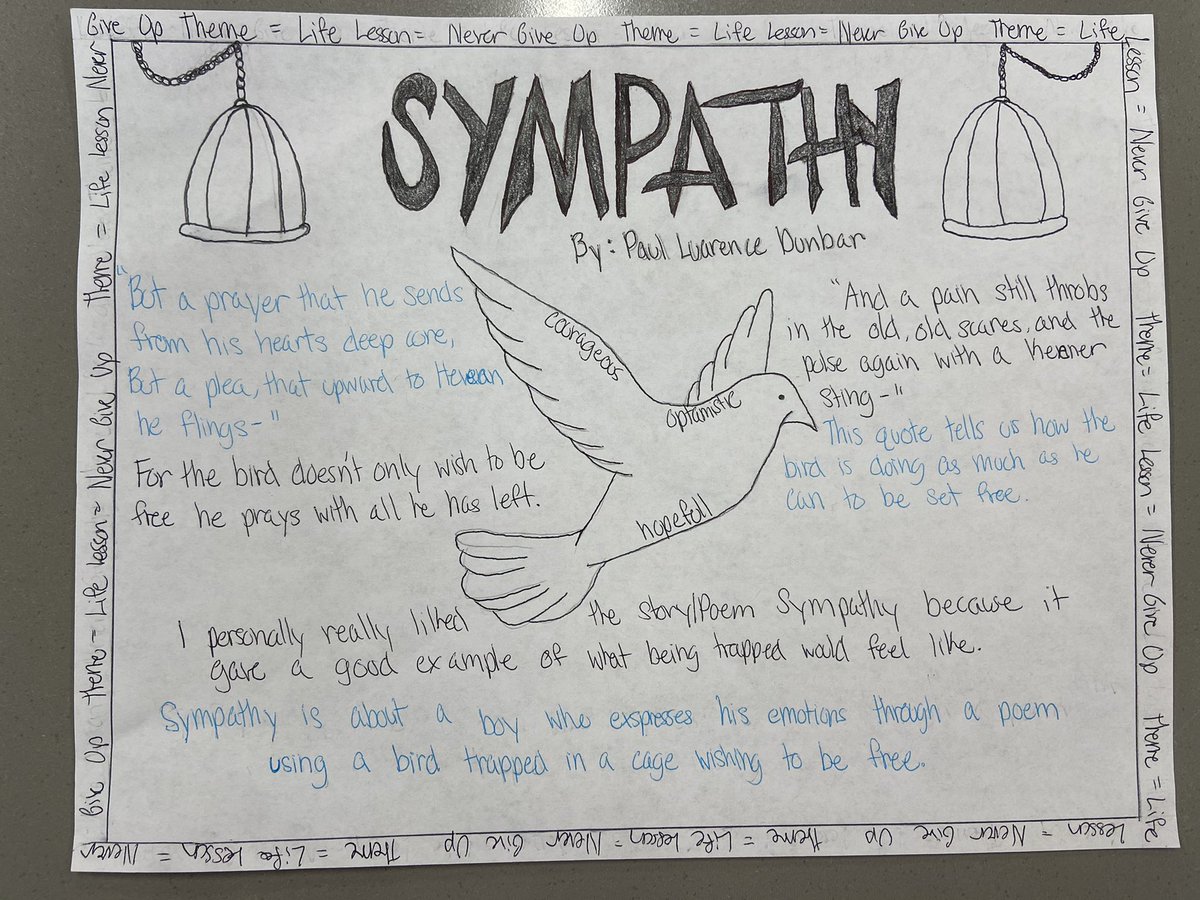 Give Up Theme = Life Lesson = Never Give Up Theme = Life Lesson = Never Give Up Theme = Life
Lesson = Never Give Up Theme = Life Lesson = Never Give Up Theme = Life
Lesson = Never Give Up Theme = Life Lesson = Never Give Up Theme = Life Lesson = Never
Give Up Theme = Life Lesson = Never Give Up Theme = Life Lesson = Never
SYMPATHY
By: Paul Luarence Dunbar
"But a prayer that he sends
from his hearts deep core,
But a plea, that upward to Hevean
he flings-"
For the bird doesn't only wish to be
free he prays with all he has left.
courageous
optamistic
hopefull
"And a pain still throbs
in the old, old scares, and the
pulse again with a keener
sting-"
This quote tells us how the
bird is doing as much as he
can to be set free.
I personally really liked the story/Poem Sympathy because it
gave a good example of what being trapped would feel like.
Sympathy is about a boy who exspresses his emotions through a poem
using a bird trapped in a cage wishing to be free.